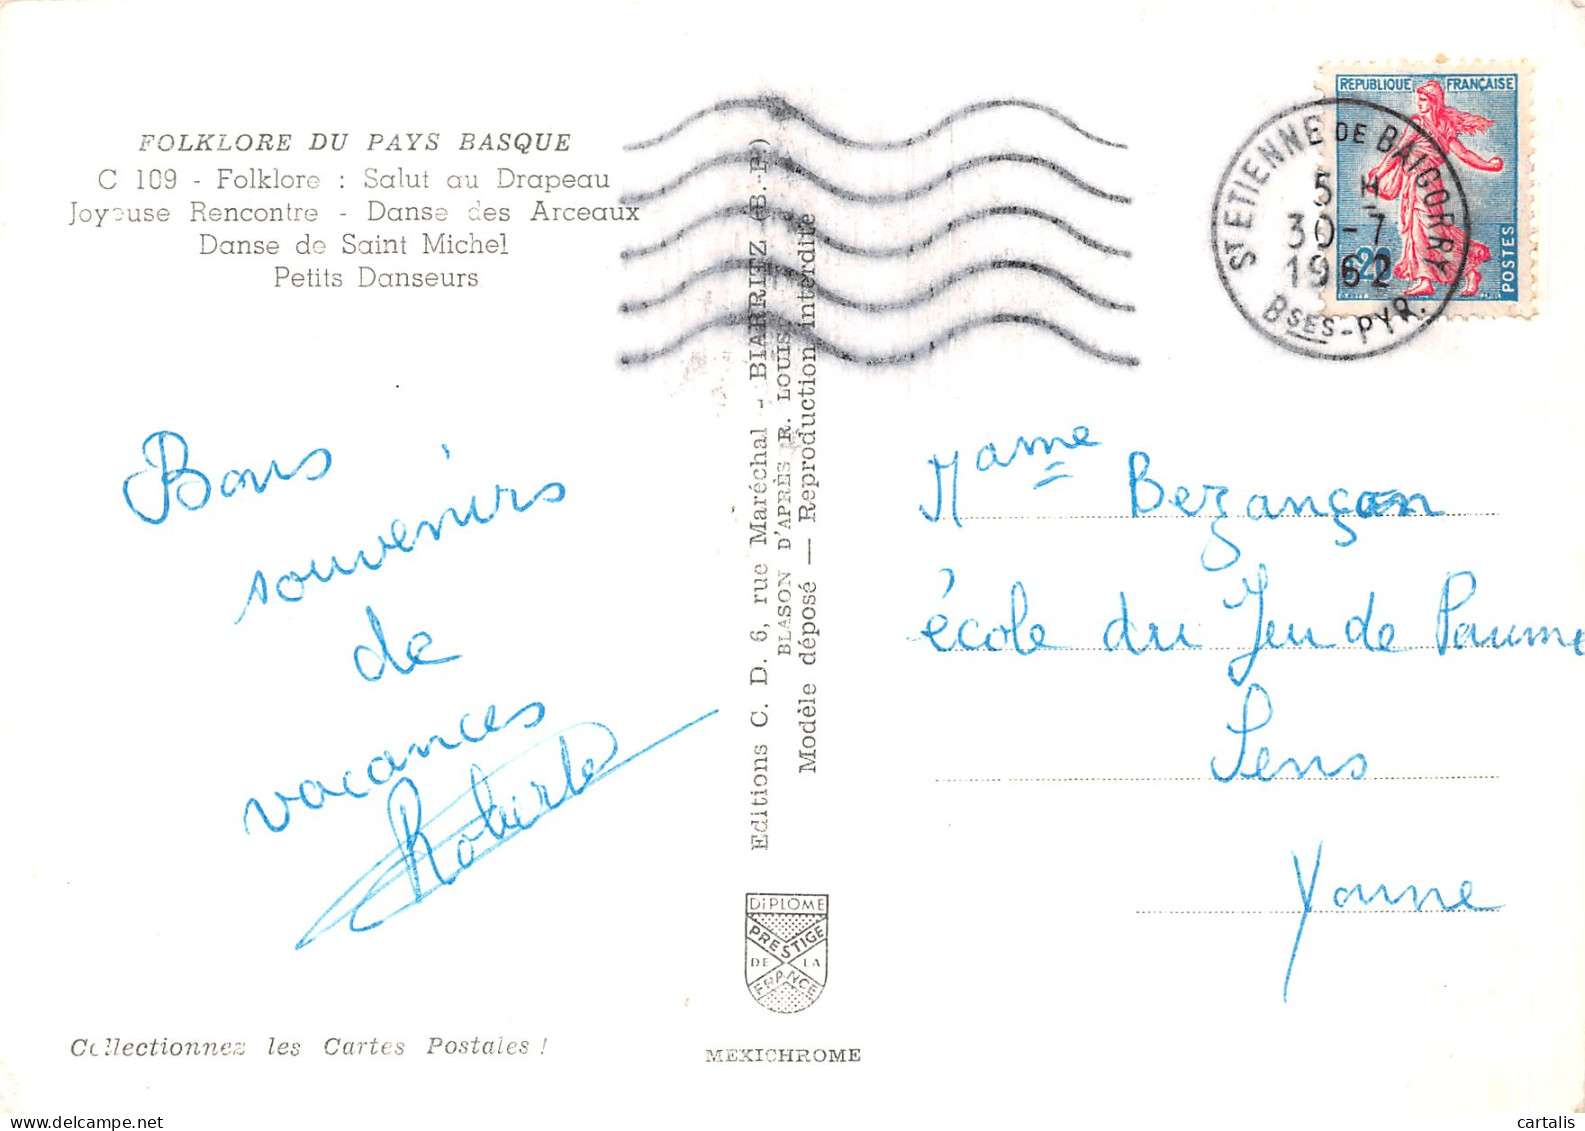 FOLKLORE DU PAYS BASQUE
C 109 - Folklore : Salut au Drapeau
Joyeuse Rencontre - Danse des Arceaux
Danse de Saint Michel
Petits Danseurs
REPUBLIQUE FRANÇAISE
0,20
POSTES
ST ETIENNE DE BAIGORRY
5 H
30-7
1962
BSES-PYR.
Bons
souvenirs
de
vacances
Roberte
Editions C. D. 6, rue Maréchal - BIARRITZ (B.-P.)
BLASON D'APRÈS R. LOUIS
Modèle déposé — Reproduction interdite
Mame Bezançon
école du Jeu de Paume
Sens
Yonne
DIPLOME
PRESTIGE
DE LA
FRANCE
Collectionnez les Cartes Postales !
MEXICHROME
cartalis